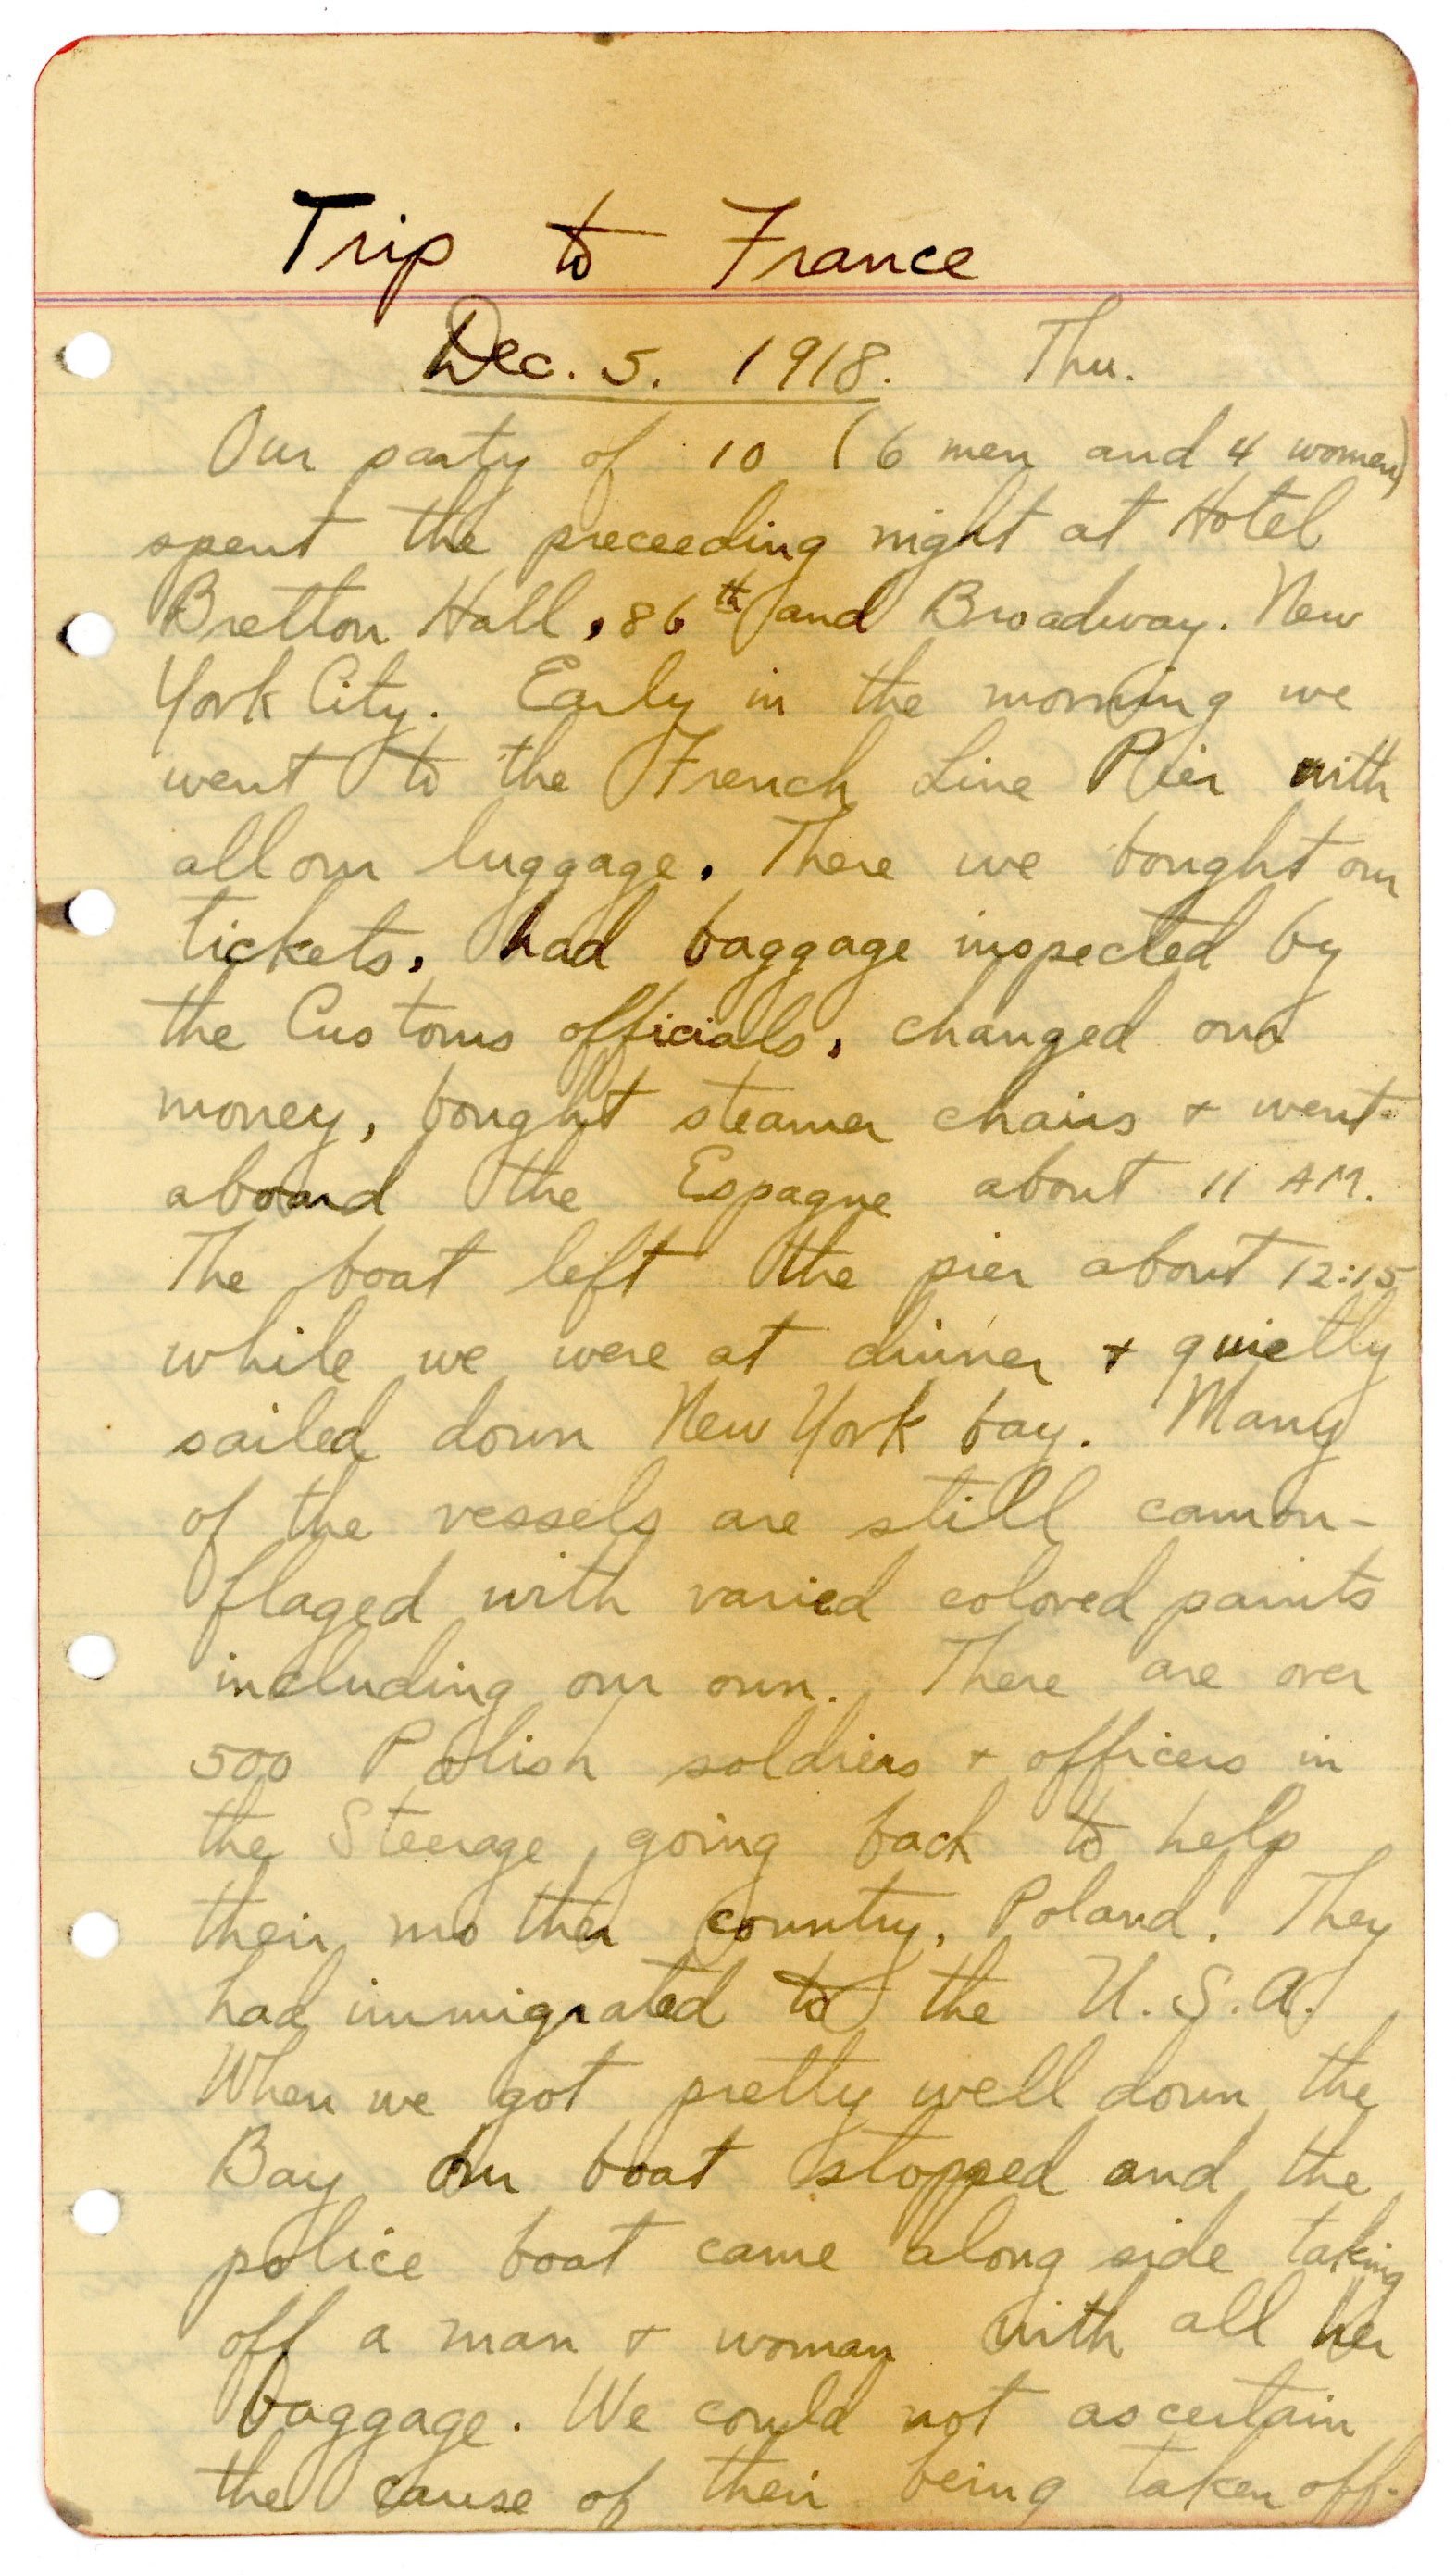 Trip to France
Dec. 5. 1918. Thu.
Our party of 10 (6 men and 4 women)
spent the preceeding night at Hotel
Bretton Hall, 86th and Broadway. New
York City. Early in the morning we
went to the French Line Pier with
all our luggage. There we bought our
tickets, had baggage inspected by
the Customs officials, changed our
money, bought steamer chairs + went
aboard the Espagne about 11 AM.
The boat left the pier about 12:15
while we were at dinner + quietly
sailed down New York bay. Many
of the vessels are still camou-
flaged with varied colored paints
including our own. There are over
500 Polish soldiers + officers in
the Steerage going back to help
their mother country, Poland. They
had immigrated to the U.S.A.
When we got pretty well down the
Bay our boat stopped and the
police boat came along side taking
off a man + woman with all her
baggage. We could not ascertain
the cause of their being taken off.